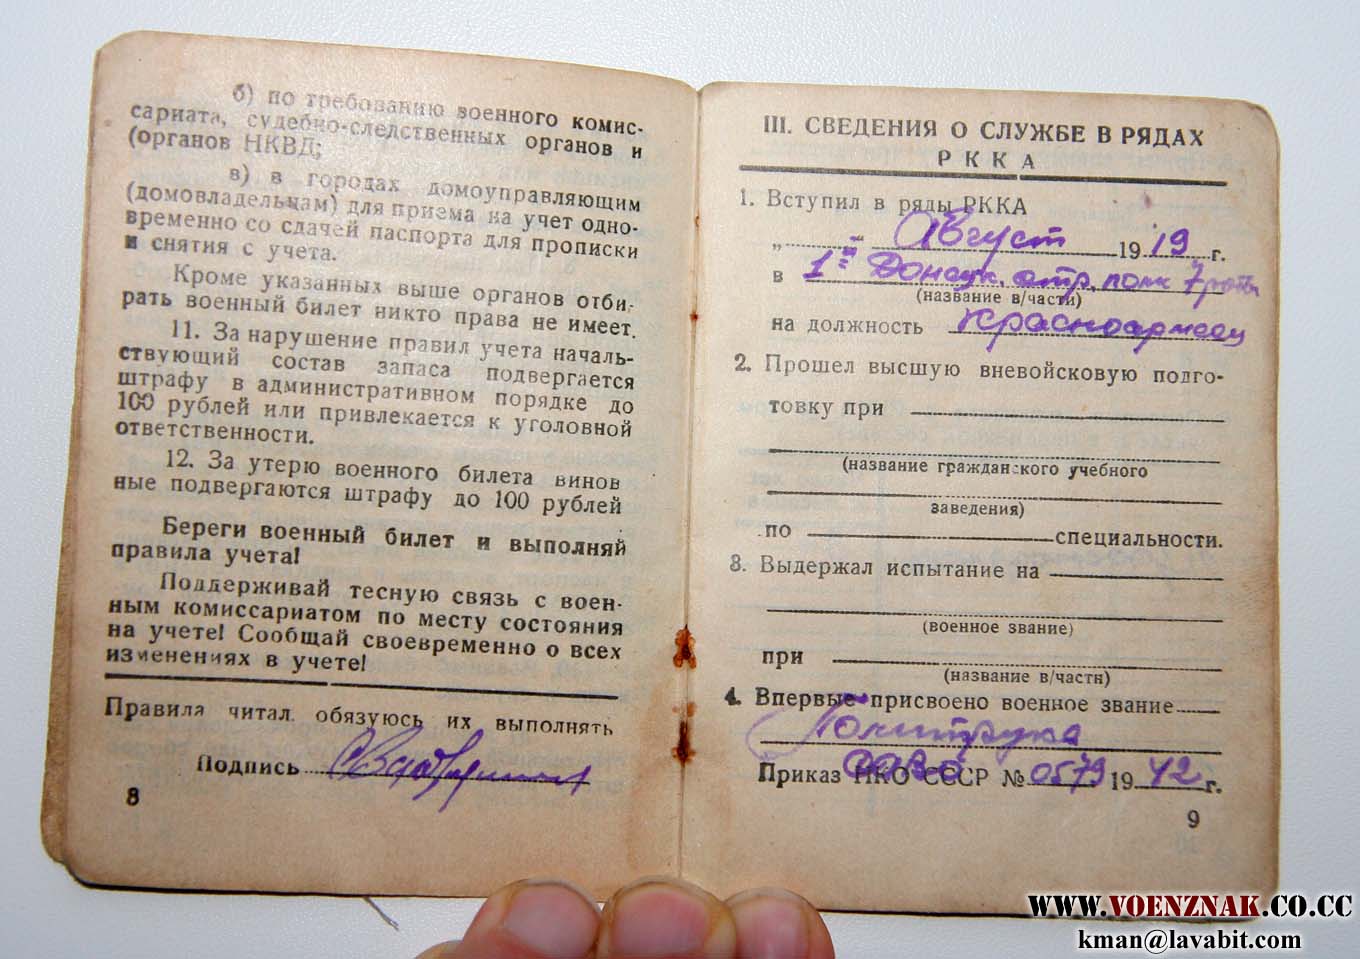 б) по требованию военного комис-
сариата, судебно-следственных органов и
(органов НКВД;
в) в городах домоуправляющим
(домовладельцам) для приема на учет одно-
временно со сдачей паспорта для прописки
и снятия с учета.
Кроме указанных выше органов отби-
рать военный билет никто права не имеет.
11. За нарушение правил учета началь-
ствующий состав запаса подвергается
штрафу в административном порядке до
100 рублей или привлекается к уголовной
ответственности.
12. За утерю военного билета винов
ные подвергаются штрафу до 100 рублей
Береги военный билет и выполняй
правила учета!
Поддерживай тесную связь с воен-
ным комиссариатом по месту состояния
на учете! Сообщай своевременно о всех
изменениях в учете!
Правила читал, обязуюсь их выполнять
Подпись
8
III. СВЕДЕНИЯ О СЛУЖБЕ В РЯДАХ
РККА
1. Вступил в ряды РККА
„ “ Август 1919 г.
в 1й Донецк. стр. полк 7 роты
(название в/части)
на должность Красноармеец
2. Прошел высшую вневойсковую подго-
товку при
(название гражданского учебного
заведения)
по специальности.
3. Выдержал испытание на
(военное звание)
при
(название в/части)
4. Впервые присвоено военное звание
Политрука
Приказ НКО СССР № 0579 1942 г.
9
WWW.VOENZNAK.CO.CC
kman@lavabit.com